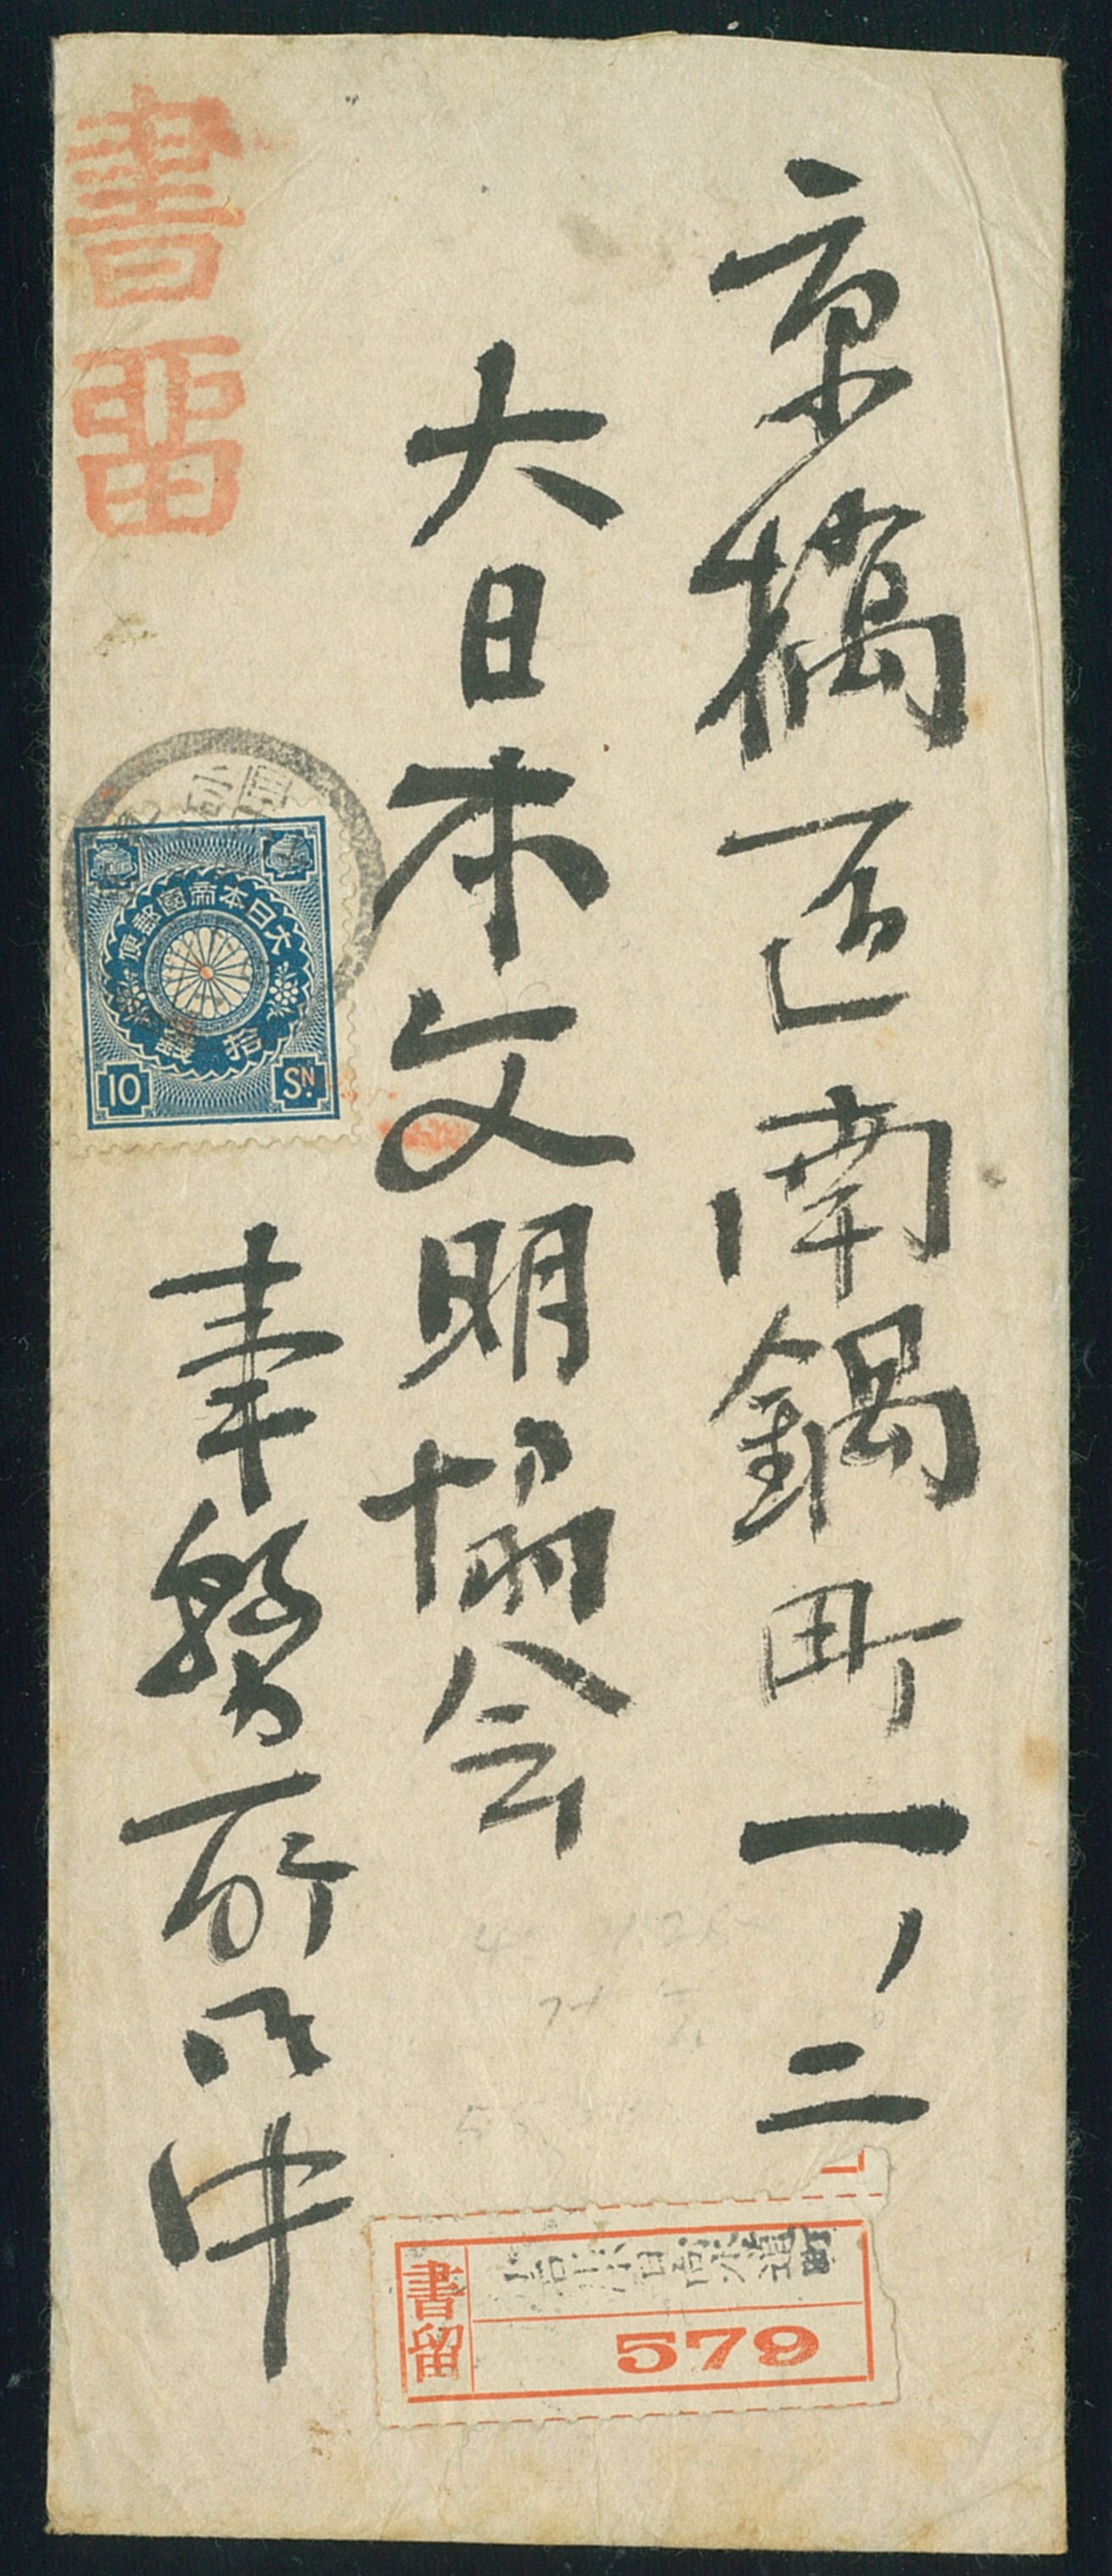 京橋区南鍋町一ノ二
大日本文明協会
事務所御中
書留
大日本帝國郵便
拾錢
10 Sn.
書留
579